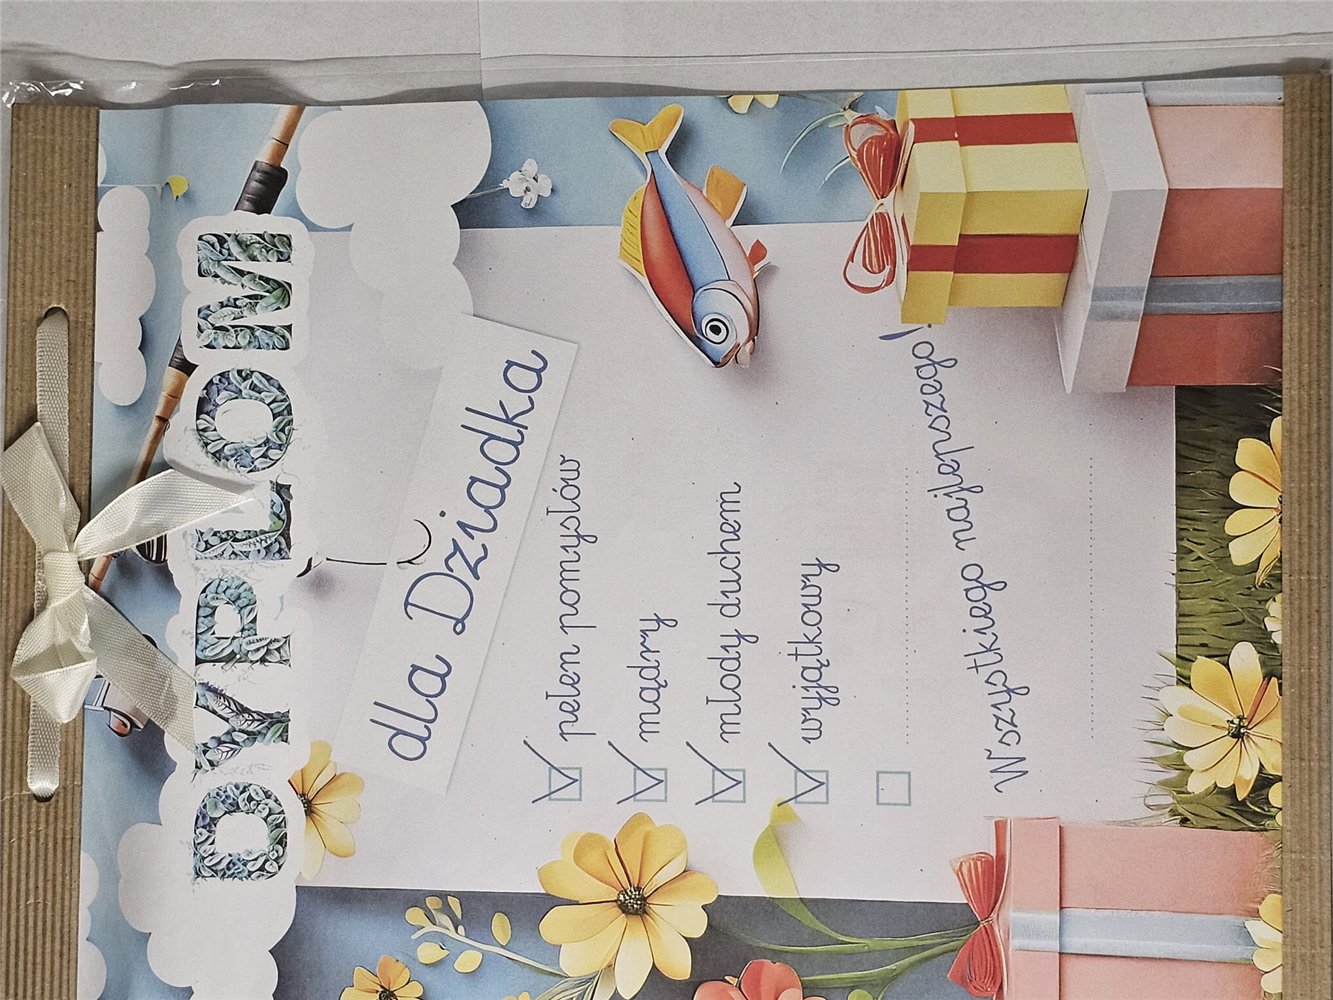 DYPLOM
dla Dziadka
pełen pomysłów
mądry
młody duchem
wyjątkowy
Wszystkiego najlepszego!